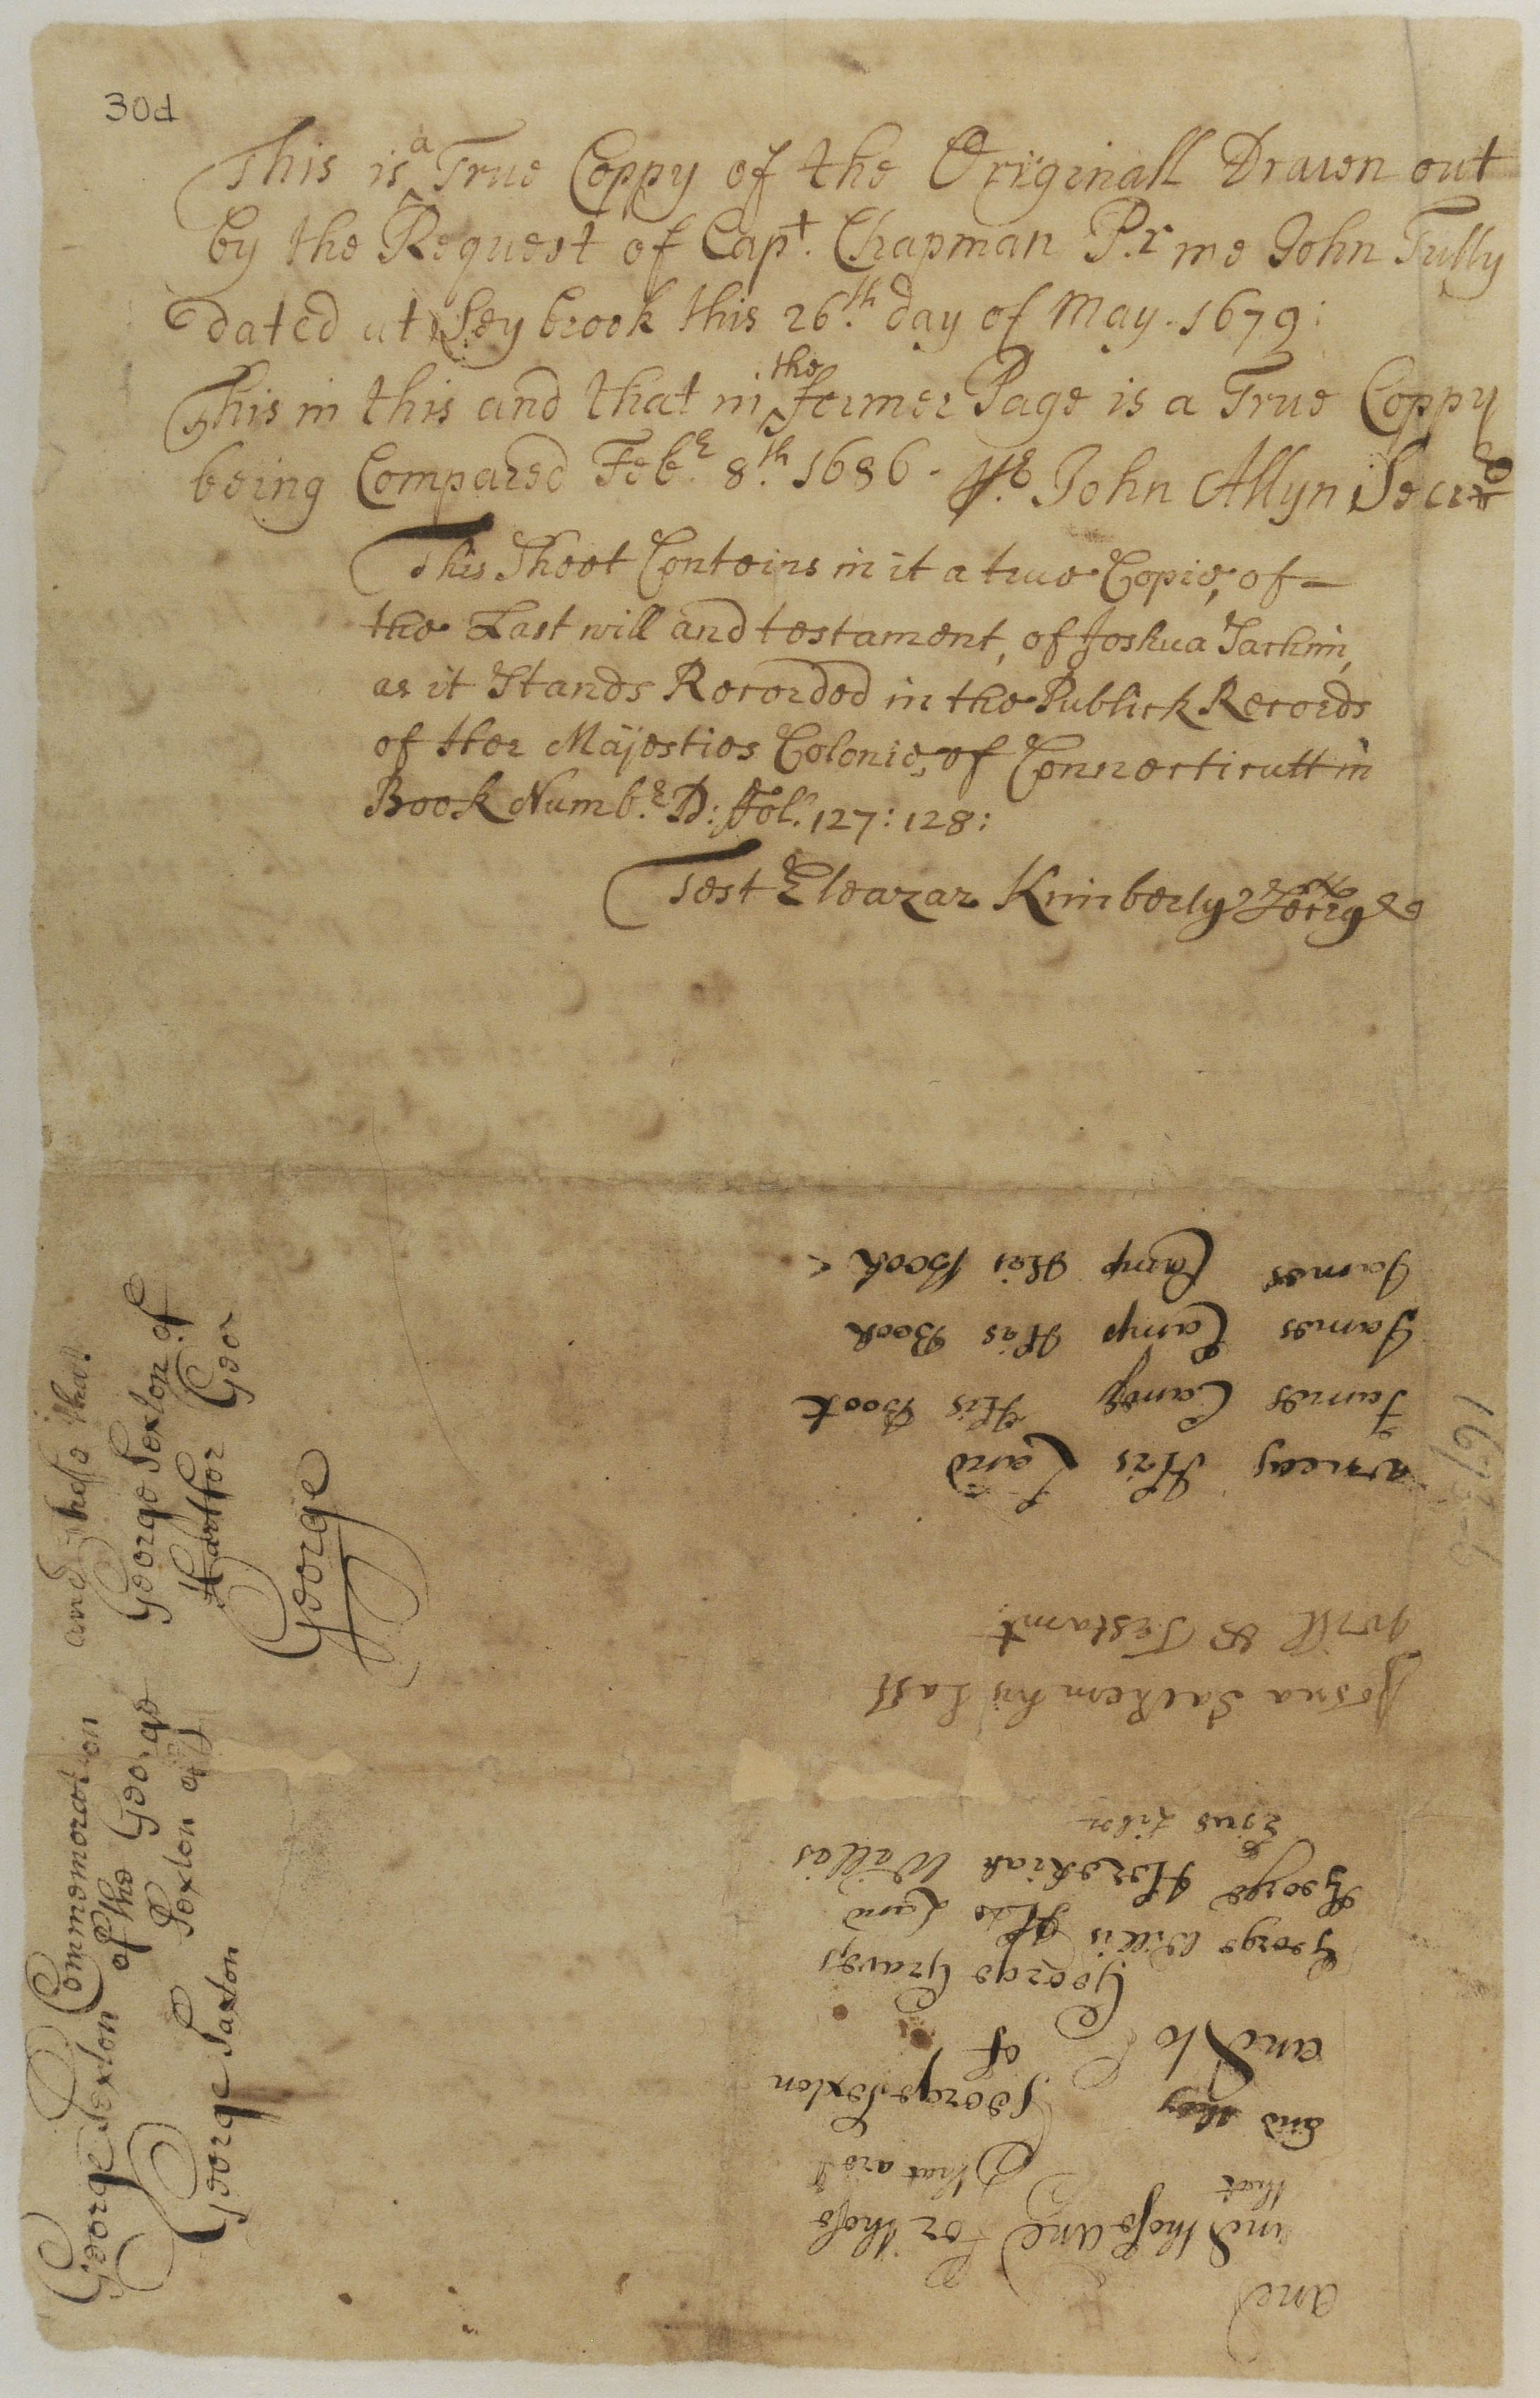 30d
This is a True Coppy of the Originall Drawn out
by the Request of Capt. Chapman P.r me John Tully
dated at Seybrook this 26.th day of May. 1679:
This in this and that in the former Page is a True Coppy
being Compared Feb.r 8.th 1686. pr John Allyn Secret
This Sheet Conteins in it a true Copie, of
the Last will and testament, of Joshua Sachim,
as it Stands Recorded in the Publick Records
of Her Majesties Colonie, of Connecticutt in
Book Numb.r D: ffol. 127: 128:
Test Eleazar Kimberly Secry
James Camp His Book
James Camp His Book
James Camp His Book
His Land
1675-6
Josua Sachem his Last
will & Testamt.
Ejus Liber
George Hezekiah Willis
George Willis His Land
George Graves
and to of
and they George Sexton
that that are
and those and For those
and
and those that
George Sexton of
Hartfor Geor
George
George Sexton Commemoration
of the George
Sexton of
George Saxton